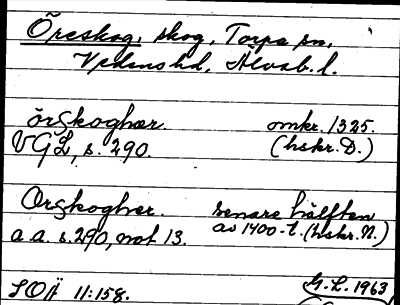 Öreskog, skog, Torpa sn,
Vedens hd, Älvsb. l.
örskoghær. omkr. 1325.
VGL, s. 290. (hskr. D.)
Orskogher. senare hälften
a.a. s. 290, not 13. av 1400-t. (hskr. N.)
SOÄ 11:158. G.L. 1963